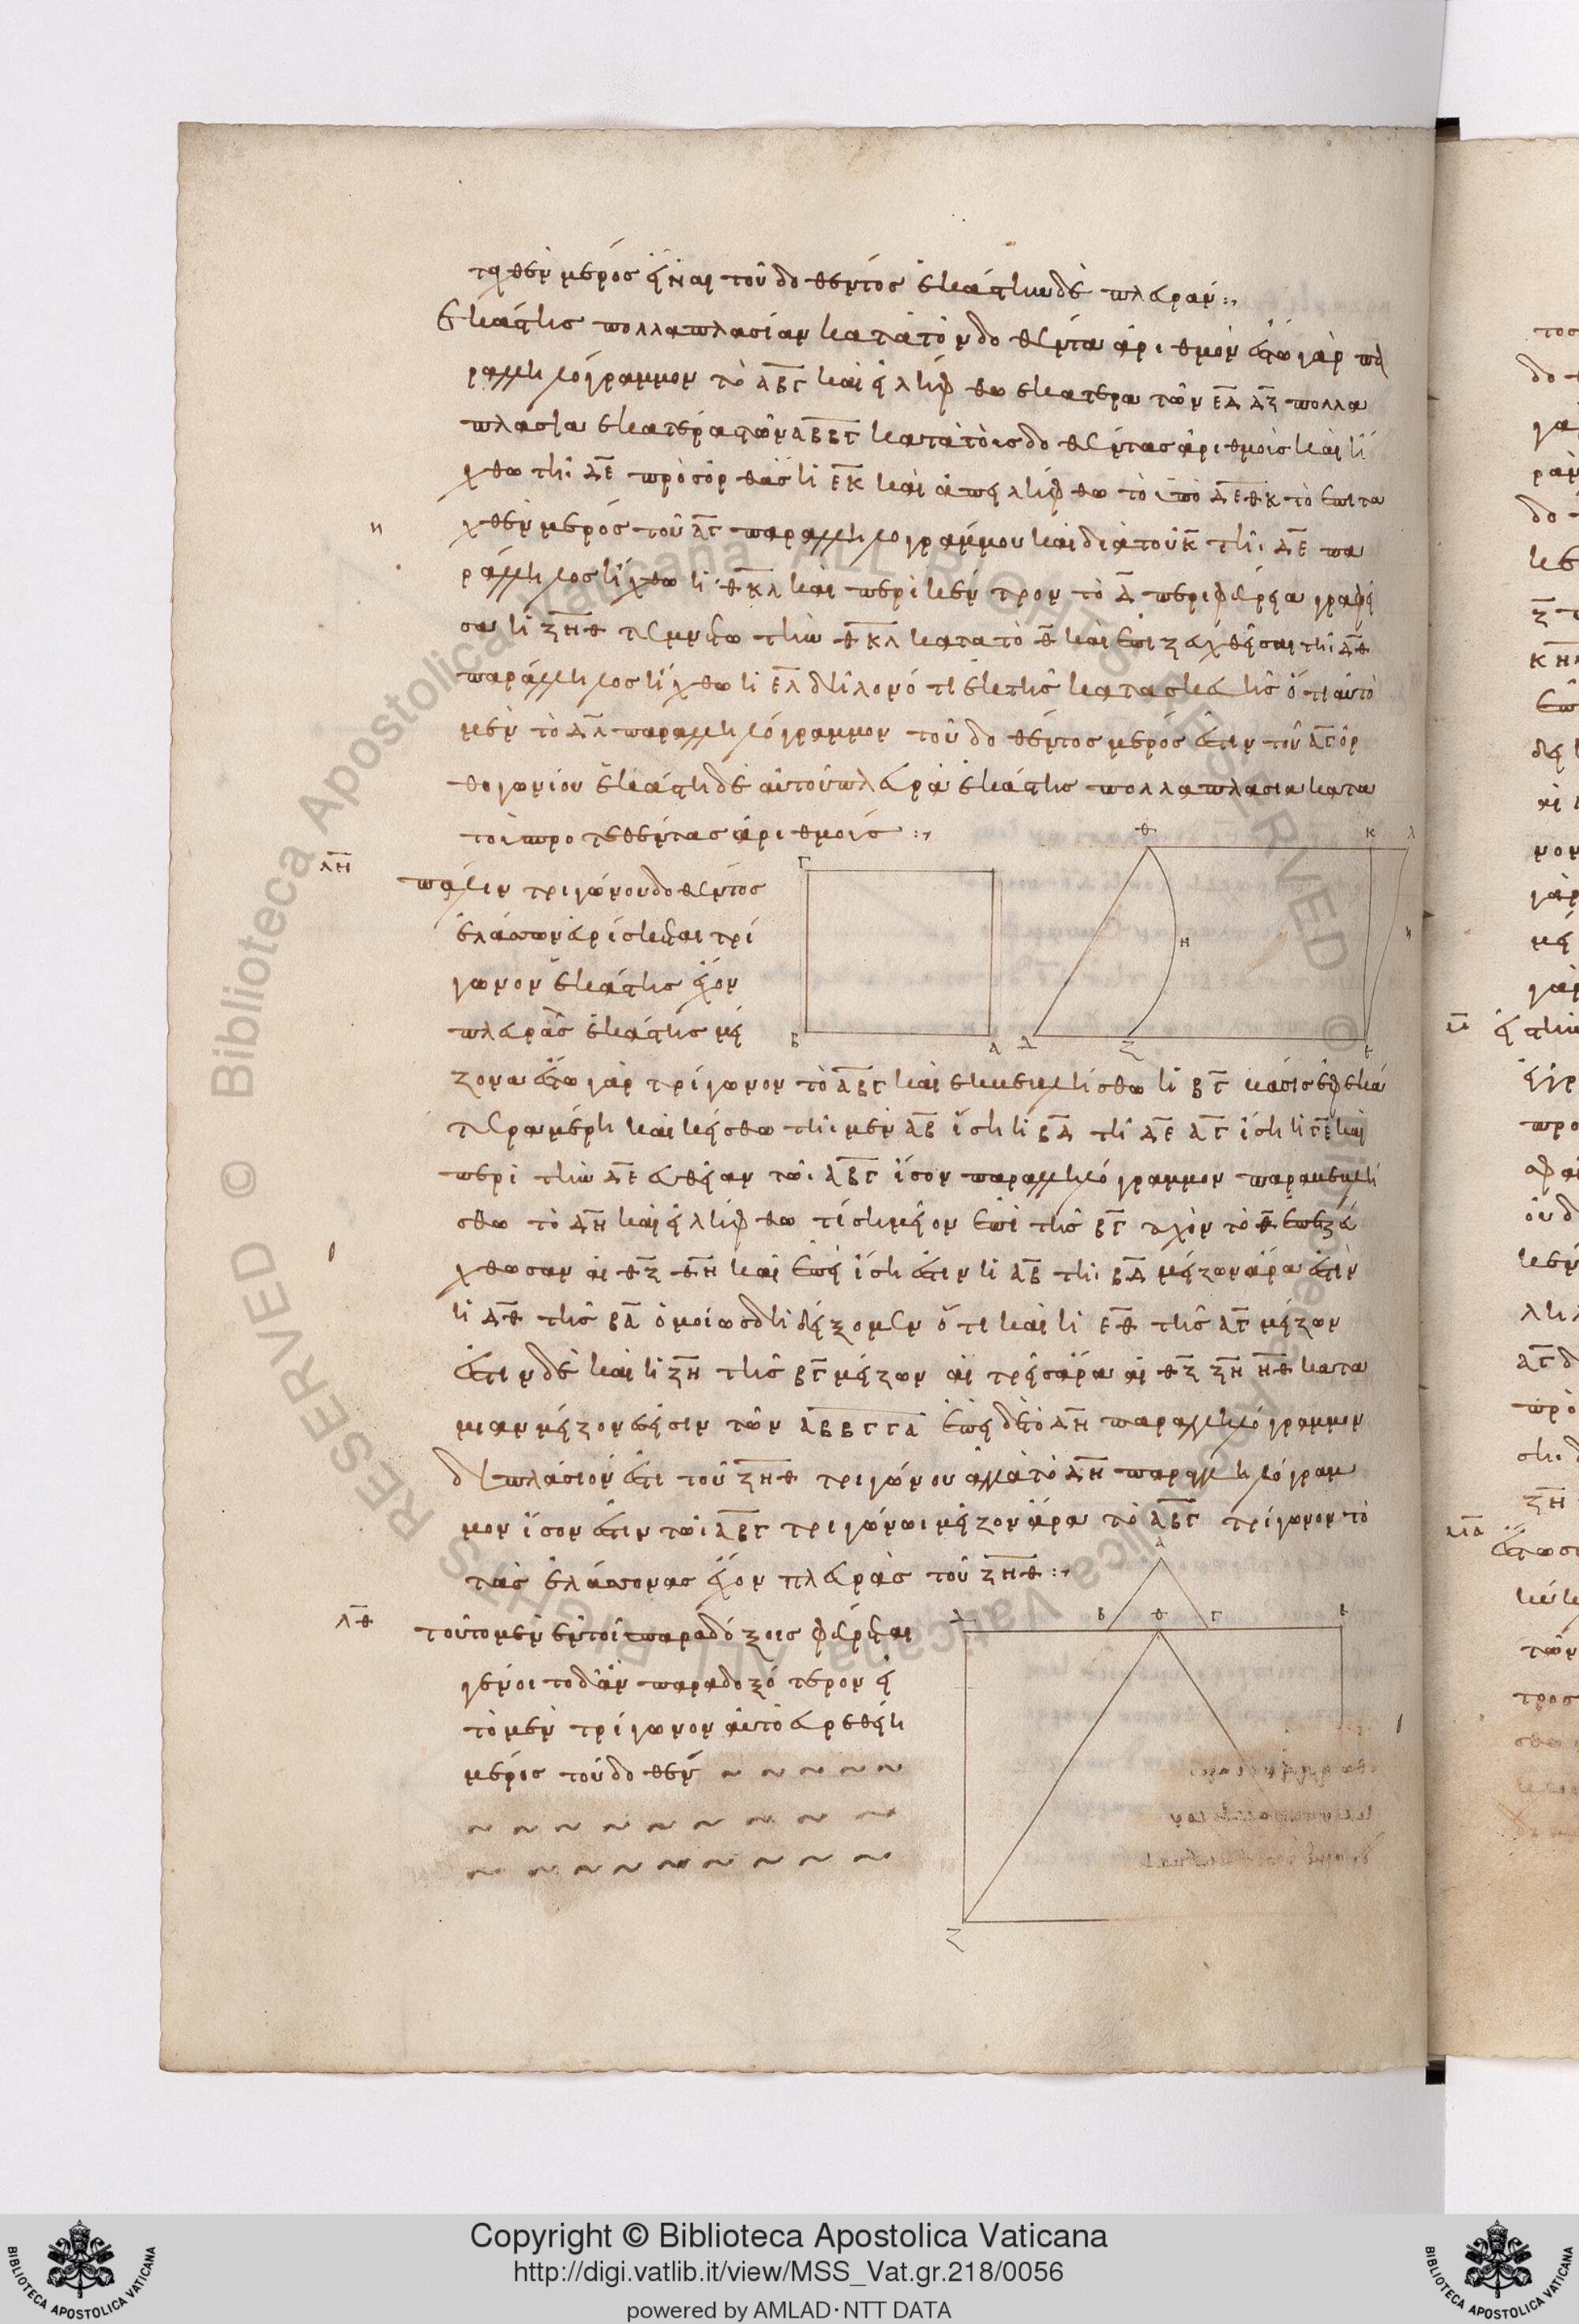 ταχθὲν μέρος εἶναι τοῦ δοθέντος ἑκάστην δὲ πλευρὰν :,
ἑκάστης πολλαπλασίαν κατὰ τὸν δοθέντα ἀριθμόν ἔστω γὰρ πα
ραλληλόγραμμον τὸ ΑΒΓ καὶ εἰλήφθω ἑκατέρα τῶν ΕΔ ΔΖ πολλα
πλασία ἑκατέρας τῶν ΑΒ ΒΓ κατὰ τοὺς δοθέντας ἀριθμοὺς καὶ ἤ
χθω τῆι ΔΕ πρὸς ὀρθὰς ἡ ΕΚ καὶ ἀπειλήφθω τὸ ὑπὸ ΔΕΘΚ τὸ ἐπιτα
χθὲν μέρος τοῦ ΑΓ παραλληλογράμμου καὶ διὰ τοῦ Κ τῆι ΔΕ πα
ράλληλος ἤχθω ἡ ΘΚΛ καὶ περὶ κέντρον τὸ Δ περιφέρεια γραφεῖ
σα ἡ ΖΗΘ τεμνέτω τὴν ΘΚΛ κατὰ τὸ Θ καὶ ἐπιζευχθείσηι τῆι ΔΘ
παράλληλος ἤχθω ἡ ΕΛ δῆλον ὅτι ἐκ τῆς κατασκευῆς ὅτι αὐτὸ
μὲν τὸ ΔΛ παραλληλόγραμμον τοῦ δοθέντος μέρος ἐστιν τοῦ ΑΓ ὀρ
θογωνίου ἑκάστη δὲ αὐτοῦ πλευρὰ ἑκάστης πολλαπλασία κατὰ
τοὺς προτεθέντας ἀριθμούς :,
ΛΗ
πάλιν τριγώνου δοθέντος
ἔλασσον εὑρίσκεται τρί
γωνον ἑκάστης ἔχον
πλευρᾶς ἑκάστης μεί
ζονα ἔστω γὰρ τρίγωνον τὸ ΑΒΓ καὶ ἐκβεβλήσθω ἡ ΒΓ βάσις ἐφ ἑκά
τερα μέρη καὶ κείσθω τῆι μὲν ΑΒ ἴση ἡ ΒΔ τῆι ΔΕ ΑΓ ἴση ἡ ΓΕ καὶ
περὶ τὴν ΔΕ εὐθεῖαν τῶι ΑΒΓ ἴσον παραλληλόγραμμον παραβεβλή
σθω τὸ ΔΗ καὶ εἰλήφθω τι σημεῖον ἐπὶ τῆς ΒΓ τυχὸν τὸ Θ ἐπεζεύ
χθωσαν αἱ ΘΖ ΘΗ καὶ ἐπεὶ ἴση ἐστιν ἡ ΑΒ τῆι ΒΔ μείζων ἄρα ἐστιν
ἡ ΔΘ τῆς ΒΑ ὁμοίως δὴ δείξομεν ὅτι καὶ ἡ ΕΘ τῆς ΑΓ μείζων
ἔστιν δὲ καὶ ἡ ΖΗ τῆς ΒΓ μείζων αἱ τρεῖς ἄρα αἱ ΘΖ ΖΗ ΗΘ κατὰ
μίαν μείζονές εἰσιν τῶν ΑΒ ΒΓ ΓΑ ἐπεὶ δὲ τὸ ΔΗ παραλληλόγραμμον
διπλάσιόν ἐστι τοῦ ΖΗΘ τριγώνου ἀλλὰ τὸ ΔΗ παραλληλόγραμ
μον ἴσον ἐστιν τῶι ΑΒΓ τριγώνωι μεῖζον ἄρα τὸ ΑΒΓ τρίγωνον τὸ
τὰς ἐλάσσονας ἔχον πλευρὰς τοῦ ΖΗΘ :,
ΛΘ
τοῦτο μὲν ἐν τοῖς παραδόξοις φέρεται
γένοιτο δ ἂν παραδοξότερον εἰ
τὸ μὲν τρίγωνον αὐτὸ εὑρεθείη
μέρος τοῦ δοθέν
Γ Β Α Δ Ζ Ε Θ Η Κ Λ
Α Δ Β Θ Γ Ε Ζ
Copyright © Biblioteca Apostolica Vaticana
http://digi.vatlib.it/view/MSS_Vat.gr.218/0056
powered by AMLAD·NTT DATA
BIBLIOTECA APOSTOLICA VATICANA
BIBLIOTECA APOSTOLICA VATICANA